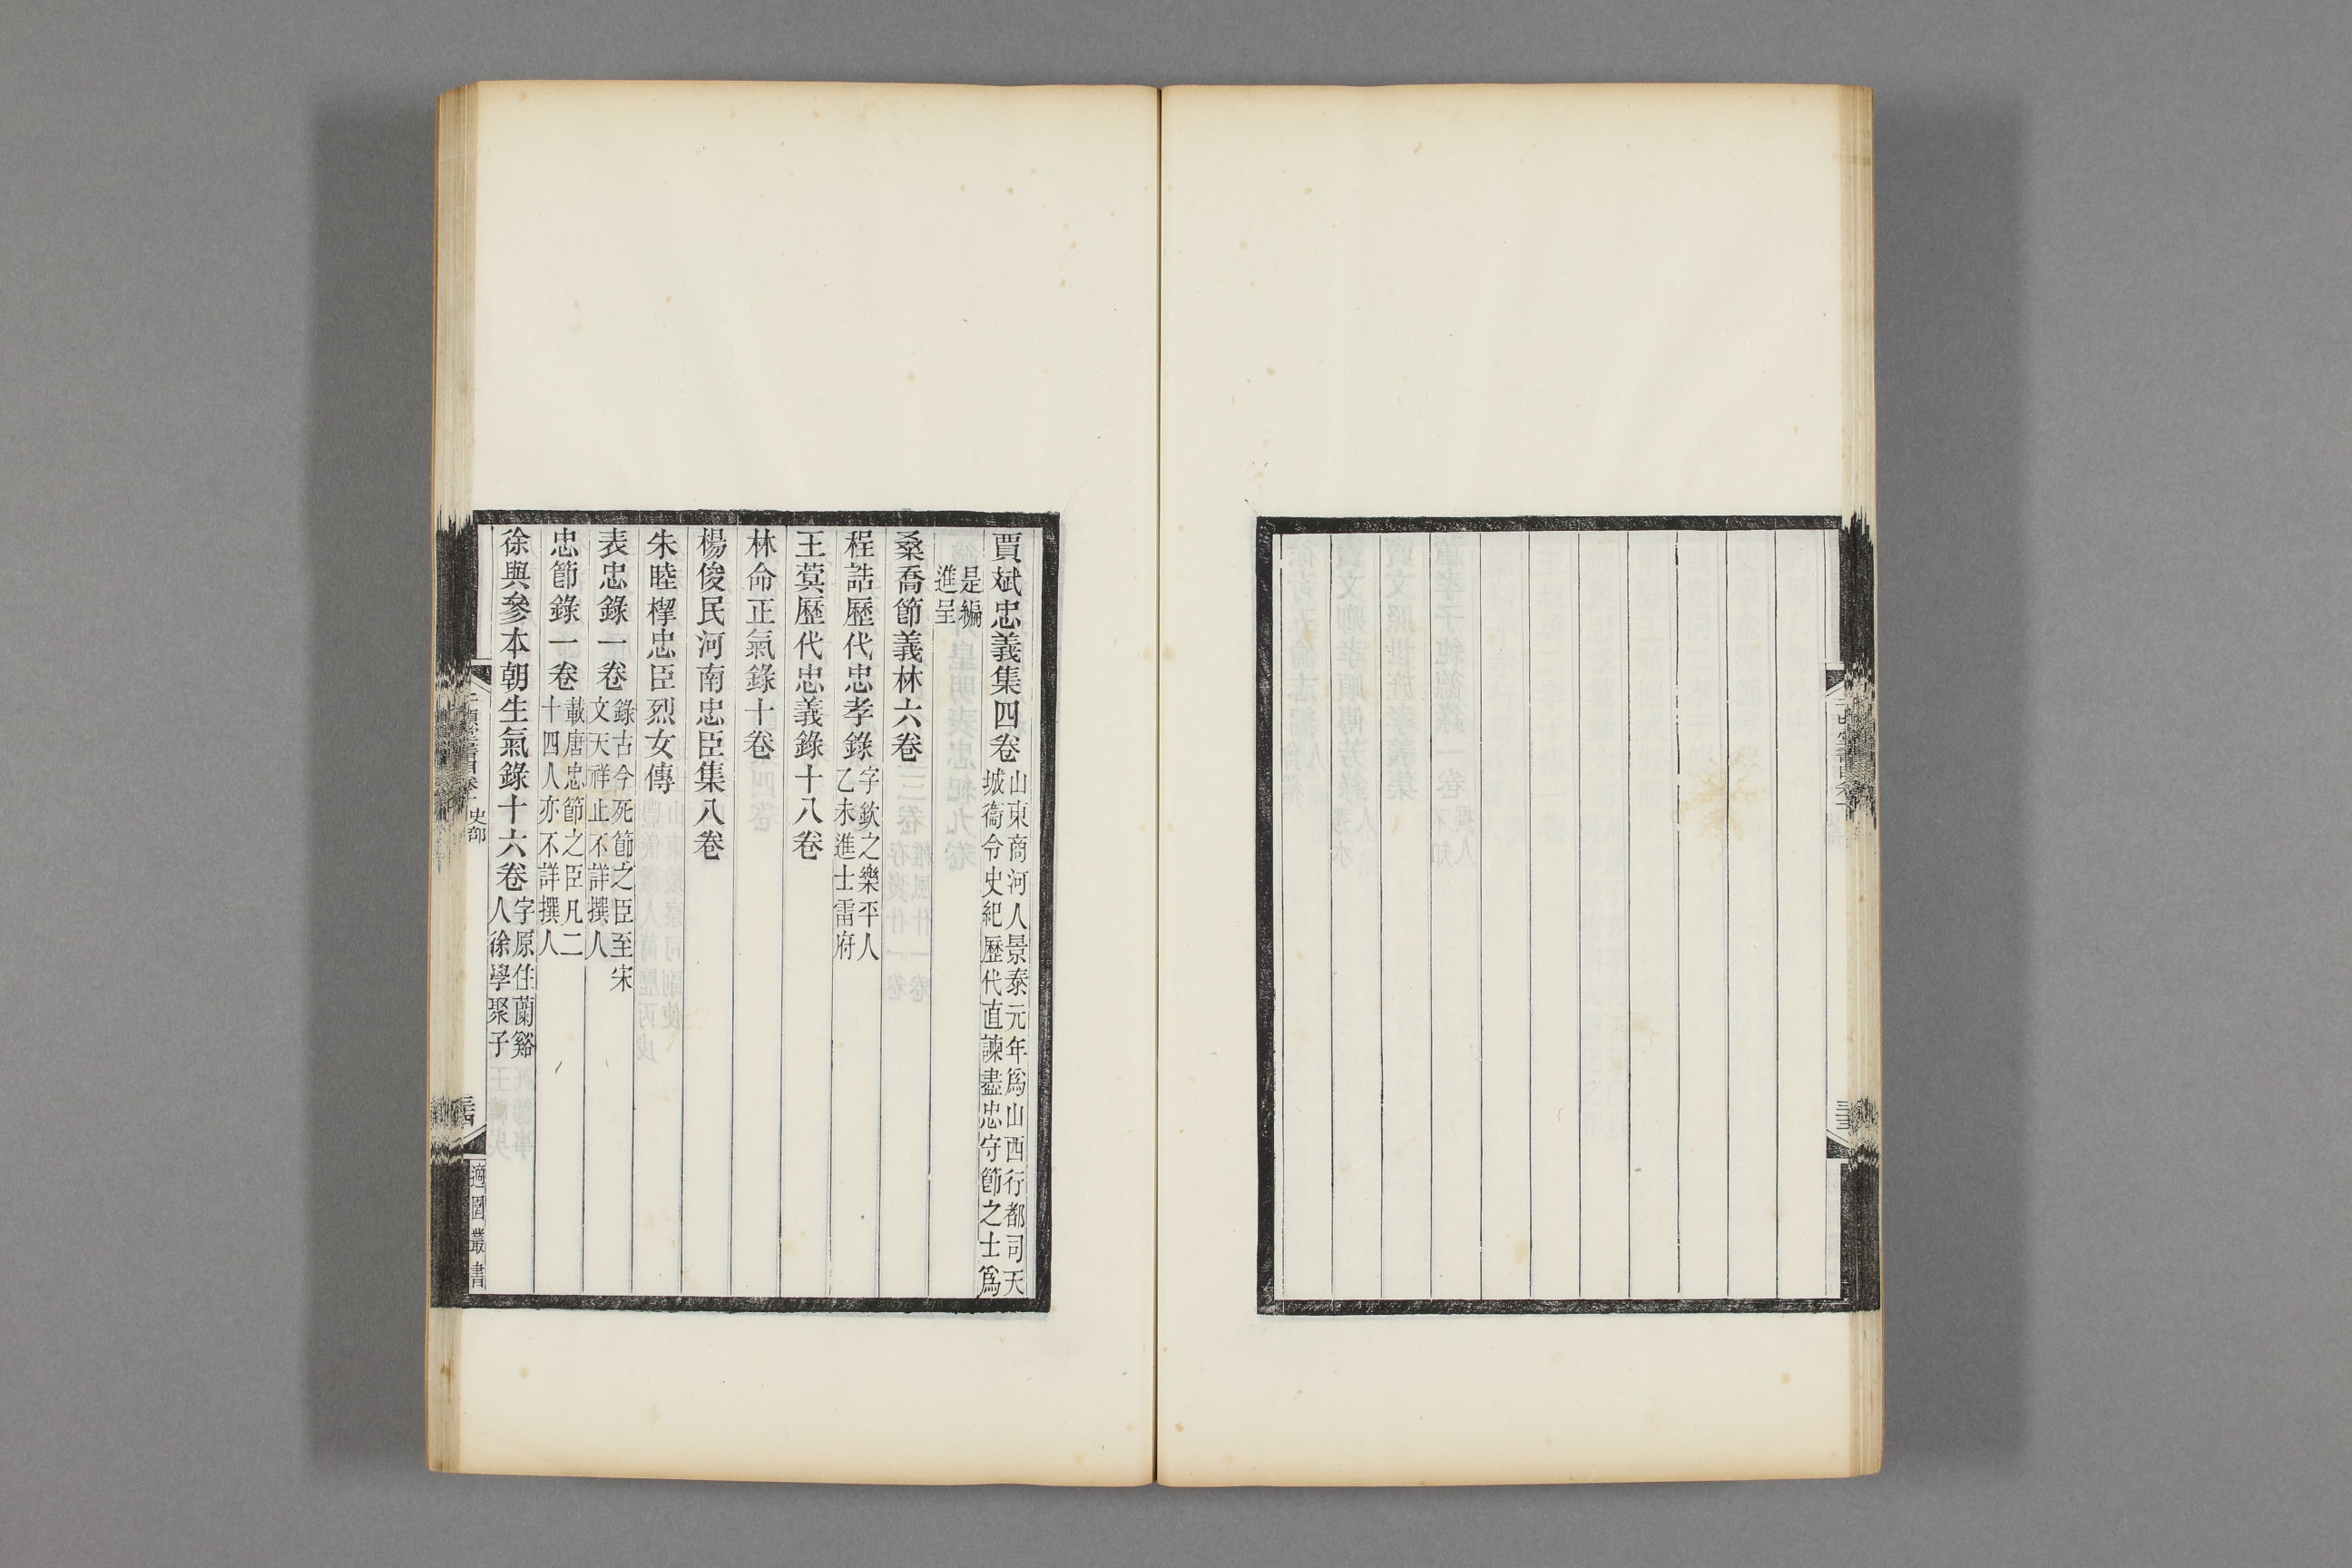 三十三
賈斌忠義集四卷山東商河人景泰元年爲山西行都司天城衞令史紀歷代直諫盡忠守節之士爲
是編進呈
桑喬節義林六卷
程誥歷代忠孝錄字欽之樂平人乙未進士雷府
王蓂歷代忠義錄十八卷
林命正氣錄十卷
楊俊民河南忠臣集八卷
朱睦㮮忠臣烈女傳
表忠錄一卷錄古今死節之臣至宋文天祥止不詳撰人
忠節錄一卷載唐忠節之臣凡二十四人亦不詳撰人
徐與參本朝生氣錄十六卷字原住蘭谿人徐學聚子
史部
適園叢書